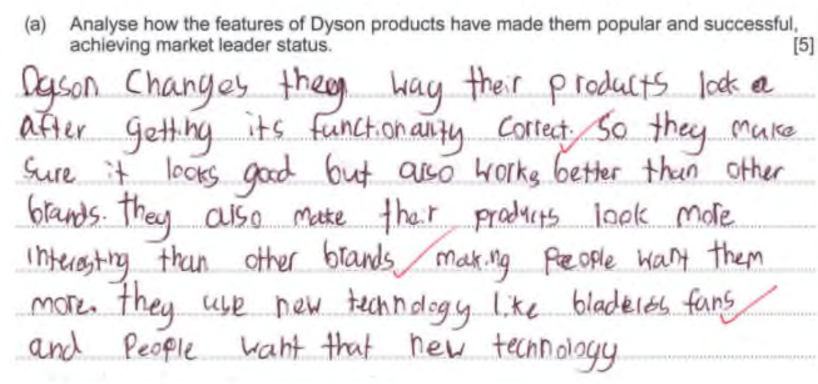 (a) Analyse how the features of Dyson products have made them popular and successful,
achieving market leader status. [5]
Dyson Changes they way their products look
after getting its functionality correct. So they make
sure it looks good but also works better than other
brands. They also make their products look more
interesting than other brands making people want them
more. They use new technology like bladeless fans
and people want that new technology